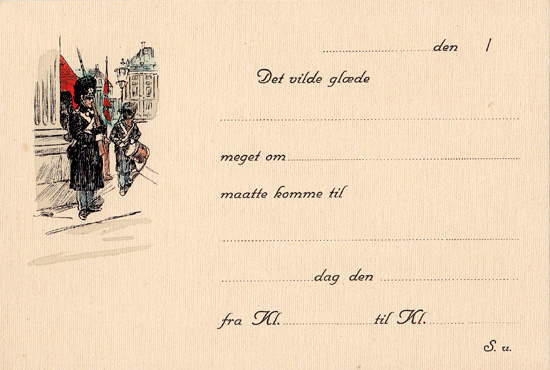 den /
Det vilde glæde
meget om
maatte komme til
dag den
fra Kl. til Kl.
S. u.